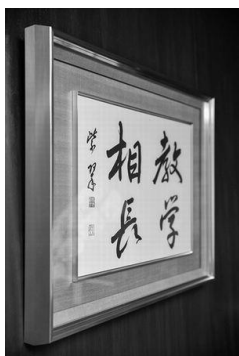 教学
相長